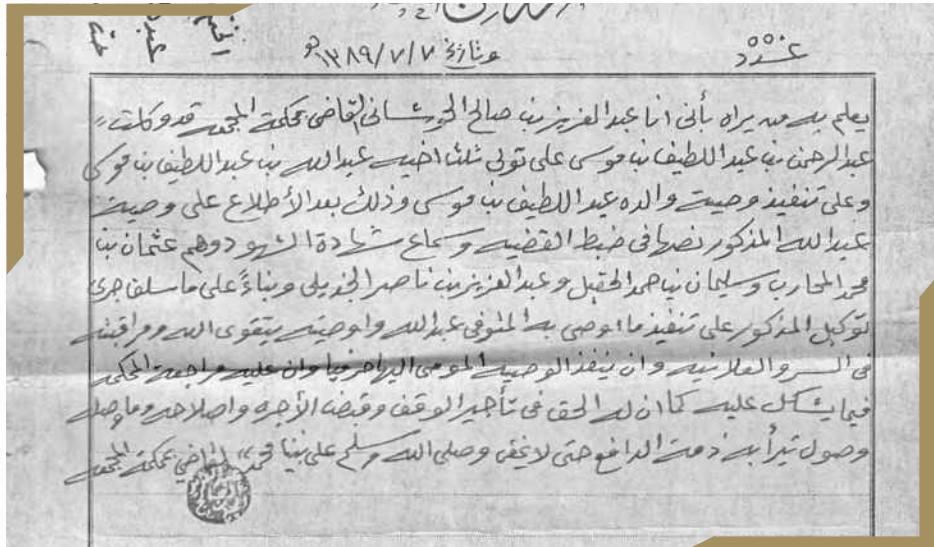 عدد
وتاريخ ١٣٨٩/٧/٧هـ
يعلم به من يراه بأنى انا عبد العزيز بن صالح الحوشانى القاضى بمحكمة المجمعه قد وكلت
عبد الرحمن بن عبد اللطيف بن موسى على تولى ثلث اخيه عبد الله بن عبد اللطيف بن موسى
وعلى تنفيذ وصيت والده عبد اللطيف بن موسى وذلك بعد الأطلاع على وصية
عبد الله المذكور نصها فى ضبط القضيه وسماع شهادة الشهود وهم عثمان بن
محمد المحارب وسليمان بن حمد الحقيل وعبد العزيز بن ناصر الجذيلى وبناءً على ما سلف جرى
توكيل المذكور على تنفيذ ما اوصى به المتوفى عبد الله واوصيته بتقوى الله ومراقبته
فى السر والعلانيه وان ينفذ الوصية المومى اليها حرفيا وان عليه مراجعة المحكمه
فيما يشكل عليه كما ان له الحق فى تأجير الوقف وقبض الأجره واصلاحه وما وصله
وصول تبرأ به ذمة الدافع حتى لا يخفى وصلى الله وسلم على نبينا محمد القاضي بمحكمة المجمعه